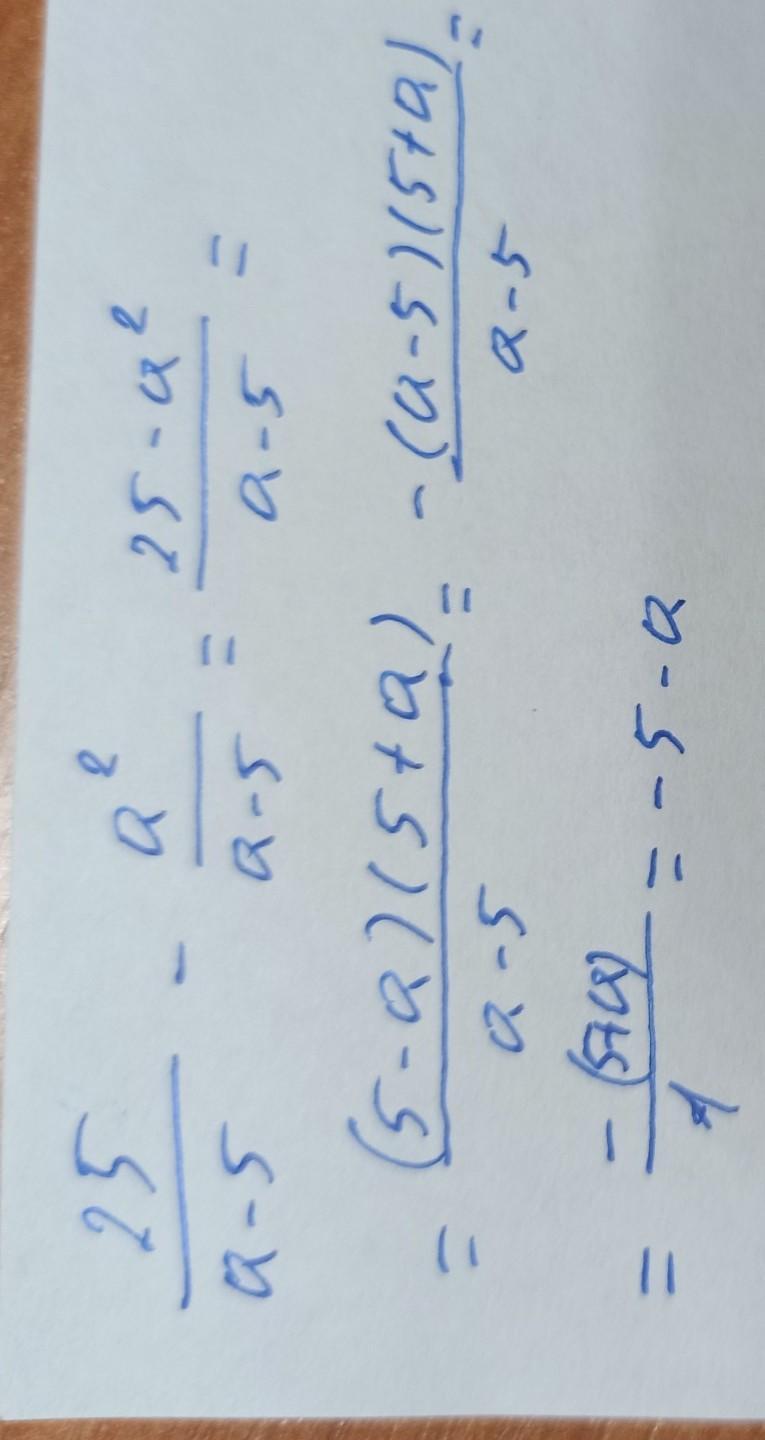 25/(a-5) - a²/(a-5) = (25-a²)/(a-5) =
= ((5-a)(5+a))/(a-5) = (-(a-5)(5+a))/(a-5) =
= (-(5+a))/1 = -5-a